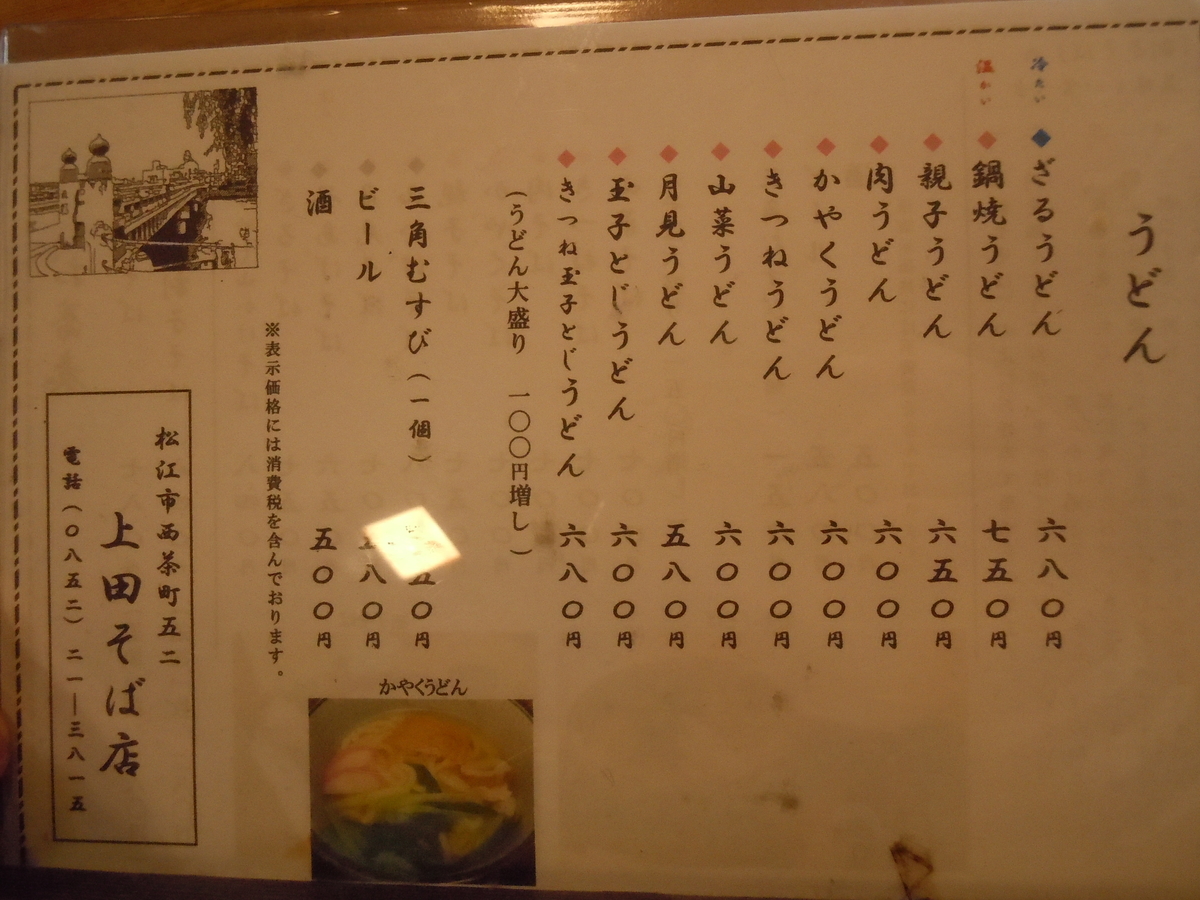 うどん
冷たい
ざるうどん 六八〇円
温かい
鍋焼うどん 七五〇円
親子うどん 六五〇円
肉うどん 六〇〇円
かやくうどん 六〇〇円
きつねうどん 六〇〇円
山菜うどん 六〇〇円
月見うどん 五八〇円
玉子とじうどん 六〇〇円
きつね玉子とじうどん 六八〇円
（うどん大盛り 一〇〇円増し）
三角むすび（一個） 五〇円
ビール 八〇円
酒 五〇〇円
※表示価格には消費税を含んでおります。
かやくうどん
松江市西茶町五二
上田そば店
電話（〇八五二）二一―三八一五